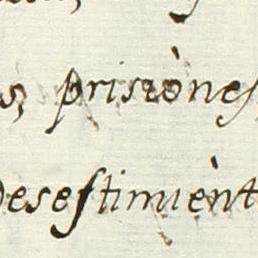 s, prisiònes
desestimiènt